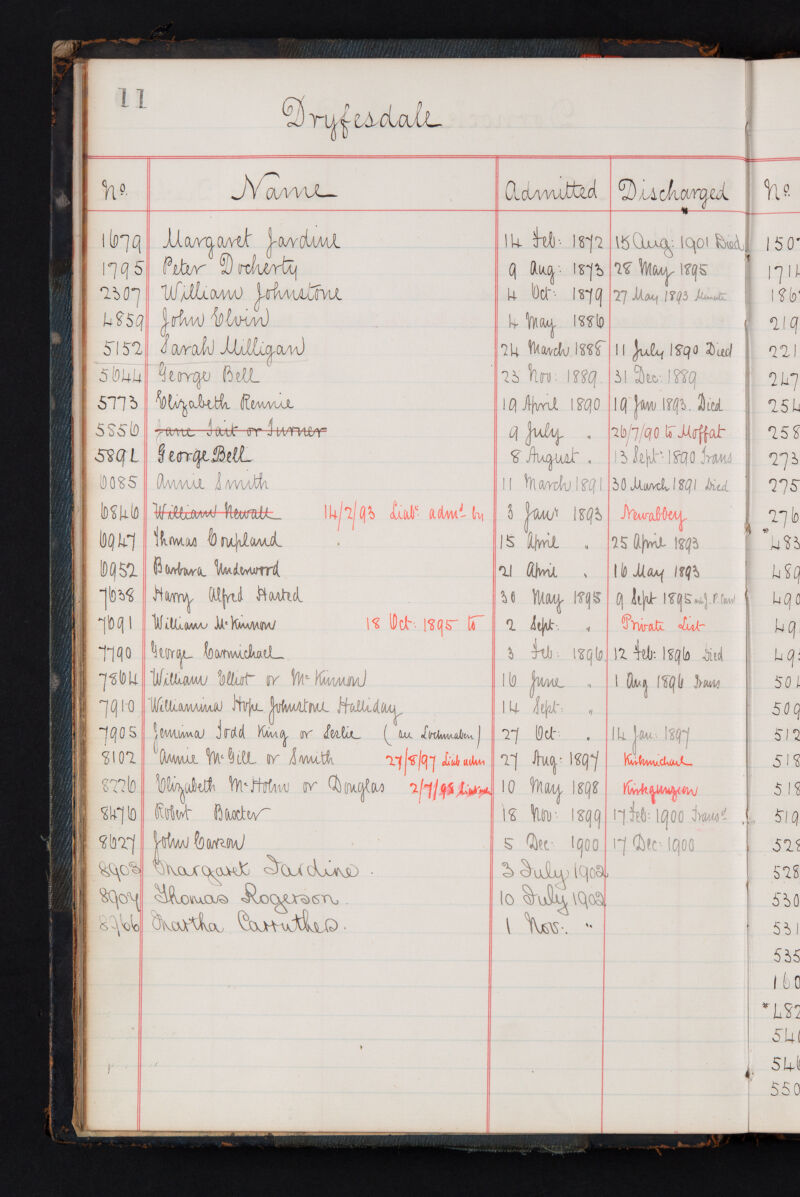 11
Dryfesdale
No. Name Admitted Discharged No
1679 Margaret Jardine 14 Feb: 1872 15 Aug: 1901 Died
1795 Peter Docherty 9 Aug: 1873 28 May 1895
2307 William Johnstone 4 Oct: 1879 27 May 1893
4859 John Elvin 4 May 1886
5152 Sarah Milligan 24 March 1888 11 July 1890 Died
5644 George Bell 23 Nov: 1889 31 Dec: 1889
5773 Elizabeth Rennie 19 April 1890 19 Jany 1893. Died
5856 Jane Tait or Turner 9 July " 26/7/90 to Moffat
5892 George Bell 8 August " 13 Sept: 1890 Trans
6085 Annie Smith 11 March 1891 30 March 1891 Died
6846 William Hewatt 14/2/93 Liaby. admd. by 3 Jany 1893 Newabbey
6947 Thomas Coupland 15 April " 25 April 1893
6952 Barbara Underwood 21 April " 16 May 1893
7638 Harry Alfred Harted 30 May 1895 9 Sept 1895
7691 William McKinnon 18 Oct: 1895 to 2 Sept: " Private List
7790 George Carmichael 3 Feb: 1896 12 Feb: 1896 Died
7864 William Elliot or McKinnon 16 June " 1 Aug 1896 Trans
7910 Williamina Hope Johnstone Halliday 14 Sept: "
7905 Jemima Todd King or Leslie (see Lochmaben) 27 Oct: " 14 Jan: 1897
8102 Annie McGill or Smith 27/8/97 Liab adm 27 Aug: 1897 Kirkmichael
8226 Elizabeth McHolm or Douglas 2/7/98 10 May 1898 Kirkgunzeon
8476 Robert Baxter 18 Nov: 1899 17 Feb: 1900 Transd.
8627 John Carson 5 Dec: 1900 17 Dec: 1900
8903 Margaret Jardine. 3 July 1902
8904 Thomas Rogerson. 10 July 1902
8966 Martha Carruthers. 1 Nov: "